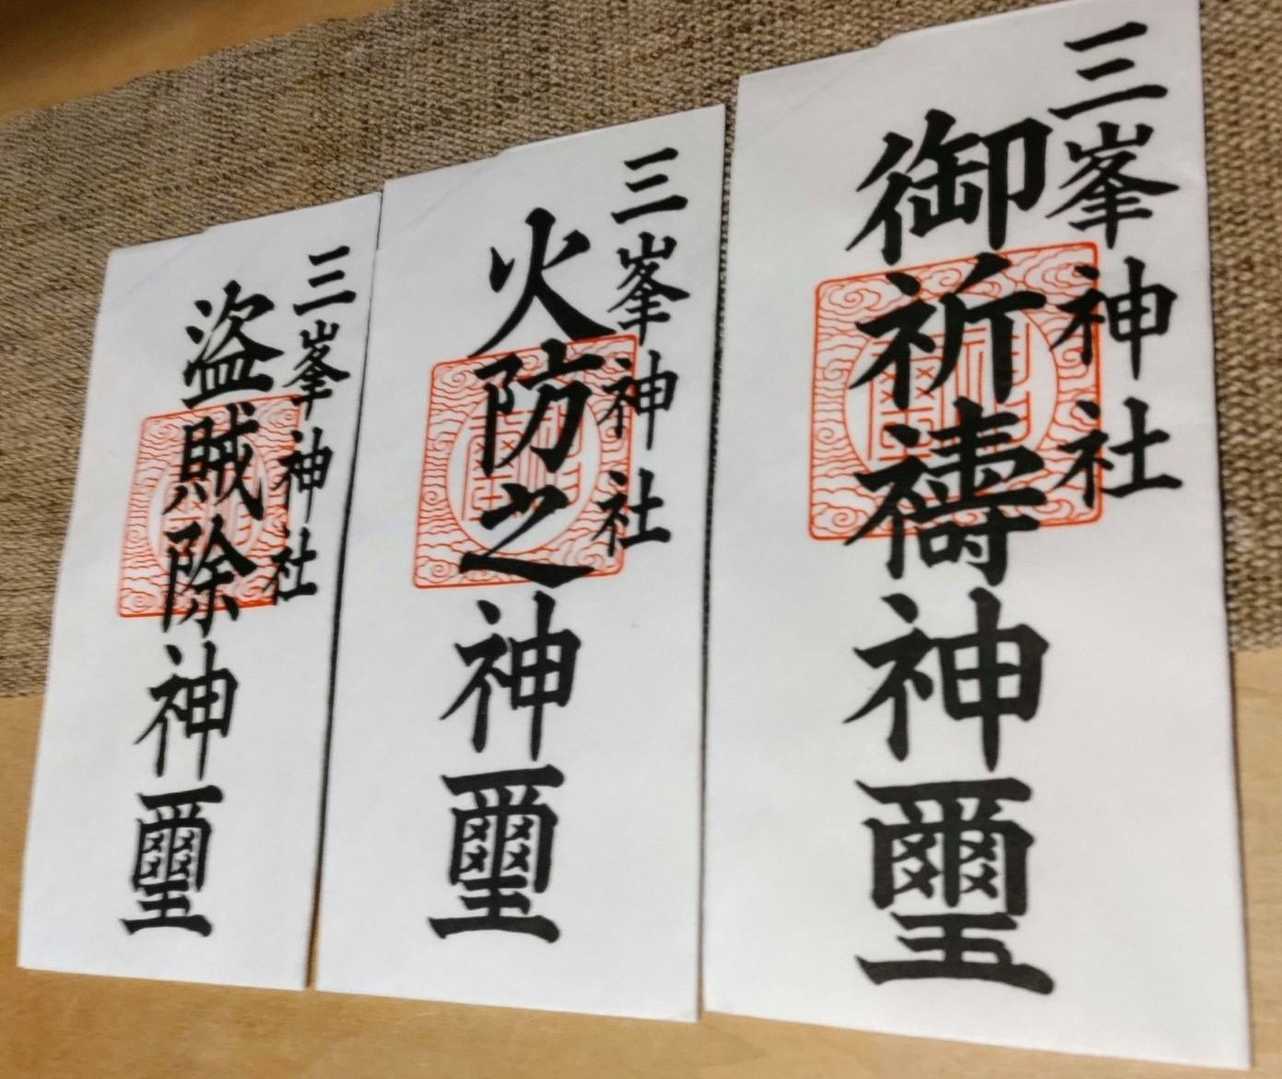 三峯神社
御祈禱神璽
三峯神社
火防之神璽
三峯神社
盗賊除神璽